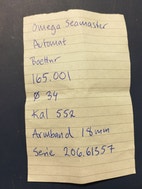 Omega Seamaster
Automat
Boettnr
165.001
Ø 34
Kal 552
Armband 18mm
Serie 206.61557